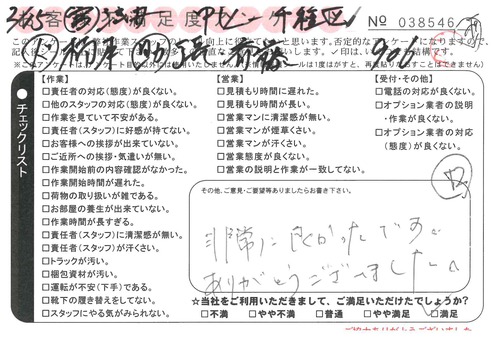 No 038546
チェックリスト
【作業】
□責任者の対応(態度)が良くない。
□他のスタッフの対応(態度)が良くない。
□作業を見ていて不安がある。
□責任者(スタッフ)に好感が持てない。
□お客様への挨拶が出来ていない。
□ご近所への挨拶・気遣いが無い。
□作業開始前の内容確認がなかった。
□作業開始時間が遅れた。
□荷物の取り扱いが雑である。
□お部屋の養生が出来ていない。
□作業時間が長すぎる。
□責任者(スタッフ)に清潔感が無い。
□責任者(スタッフ)が汗くさい。
□トラックが汚い。
□梱包資材が汚い。
□運転が不安(下手)である。
□靴下の履き替えをしてない。
□スタッフにやる気がみられない。
【営業】
□見積もり時間に遅れた。
□見積もり時間が長い。
□営業マンに清潔感が無い。
□営業マンが煙草くさい。
□営業マンが汗くさい。
□営業態度が良くない。
□営業の説明と作業が一致してない。
【受付・その他】
□電話の対応が良くない。
□オプション業者の説明
・作業が良くない。
□オプション業者の対応
(態度)が良くない。
その他、ご意見・ご要望等ありましたらお書き下さい。
非常に良かったです。
ありがとうございました。
☆当社をご利用いただきまして、ご満足いただけたでしょうか?
□不満 □やや不満 □普通 □やや満足 □満足
ご協力ありがとうございました